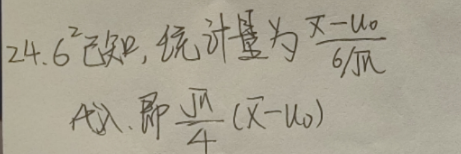 24. σ²已知,统计量为 (x̄-u₀)/(σ/√n)
A对. 即 √n/4 (x̄-u₀)